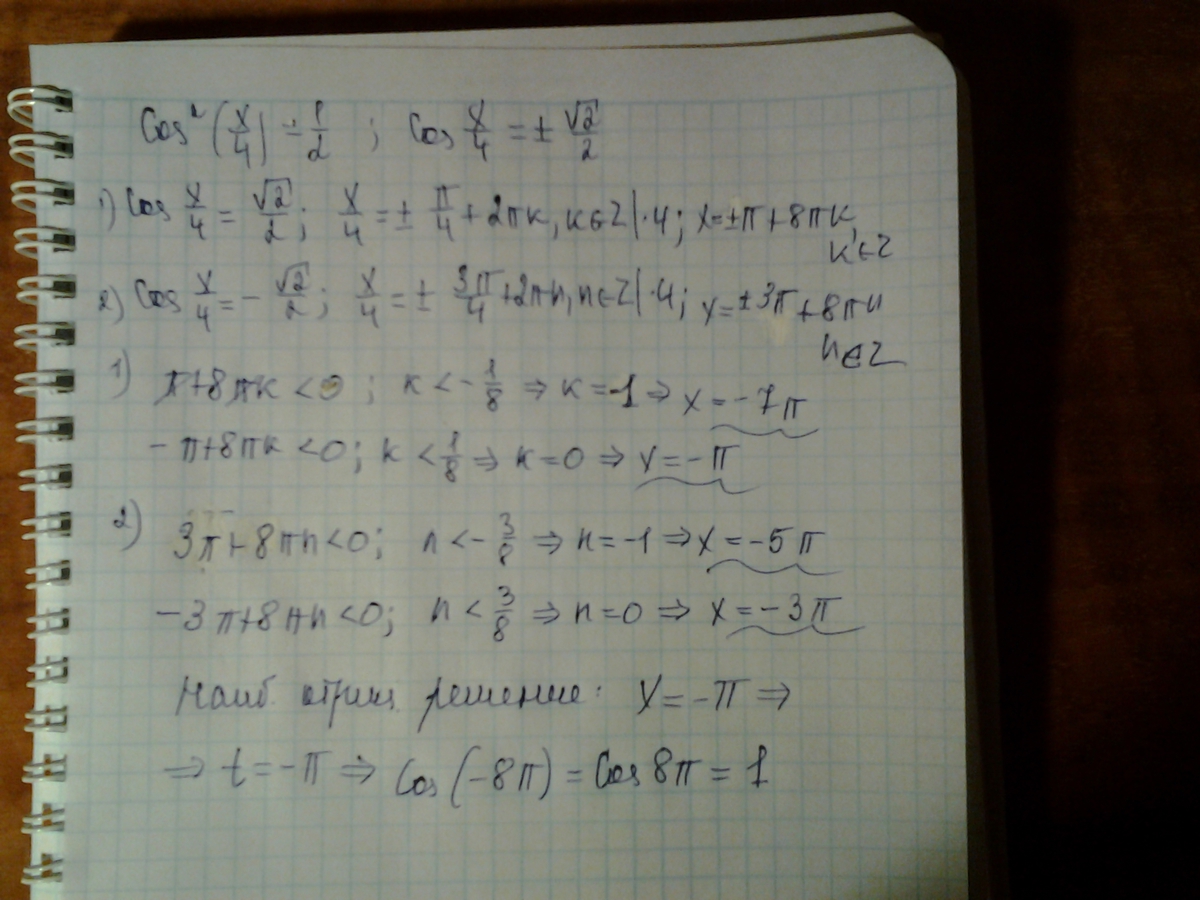 Cos² (x/4) = 1/2 ; Cos x/4 = ± √2/2
1) Cos x/4 = √2/2 ; x/4 = ± π/4 + 2πk, k∈Z |·4 ; x = ±π + 8πk,
k∈Z
2) Cos x/4 = - √2/2 ; x/4 = ± 3π/4 + 2πn, n∈Z |·4 ; x = ±3π + 8πn
n∈Z
1) π+8πk <0 ; k < - 1/8 ⇒ k = -1 ⇒ x = -7π
- π+8πk <0 ; k < 1/8 ⇒ k=0 ⇒ x = -π
2) 3π+8πn<0 ; n < - 3/8 ⇒ n = -1 ⇒ x = -5π
-3π+8πn<0 ; n < 3/8 ⇒ n=0 ⇒ x = -3π
Наиб. отриц. решение: x = -π ⇒
⇒ t = -π ⇒ Cos (-8π) = Cos 8π = 1